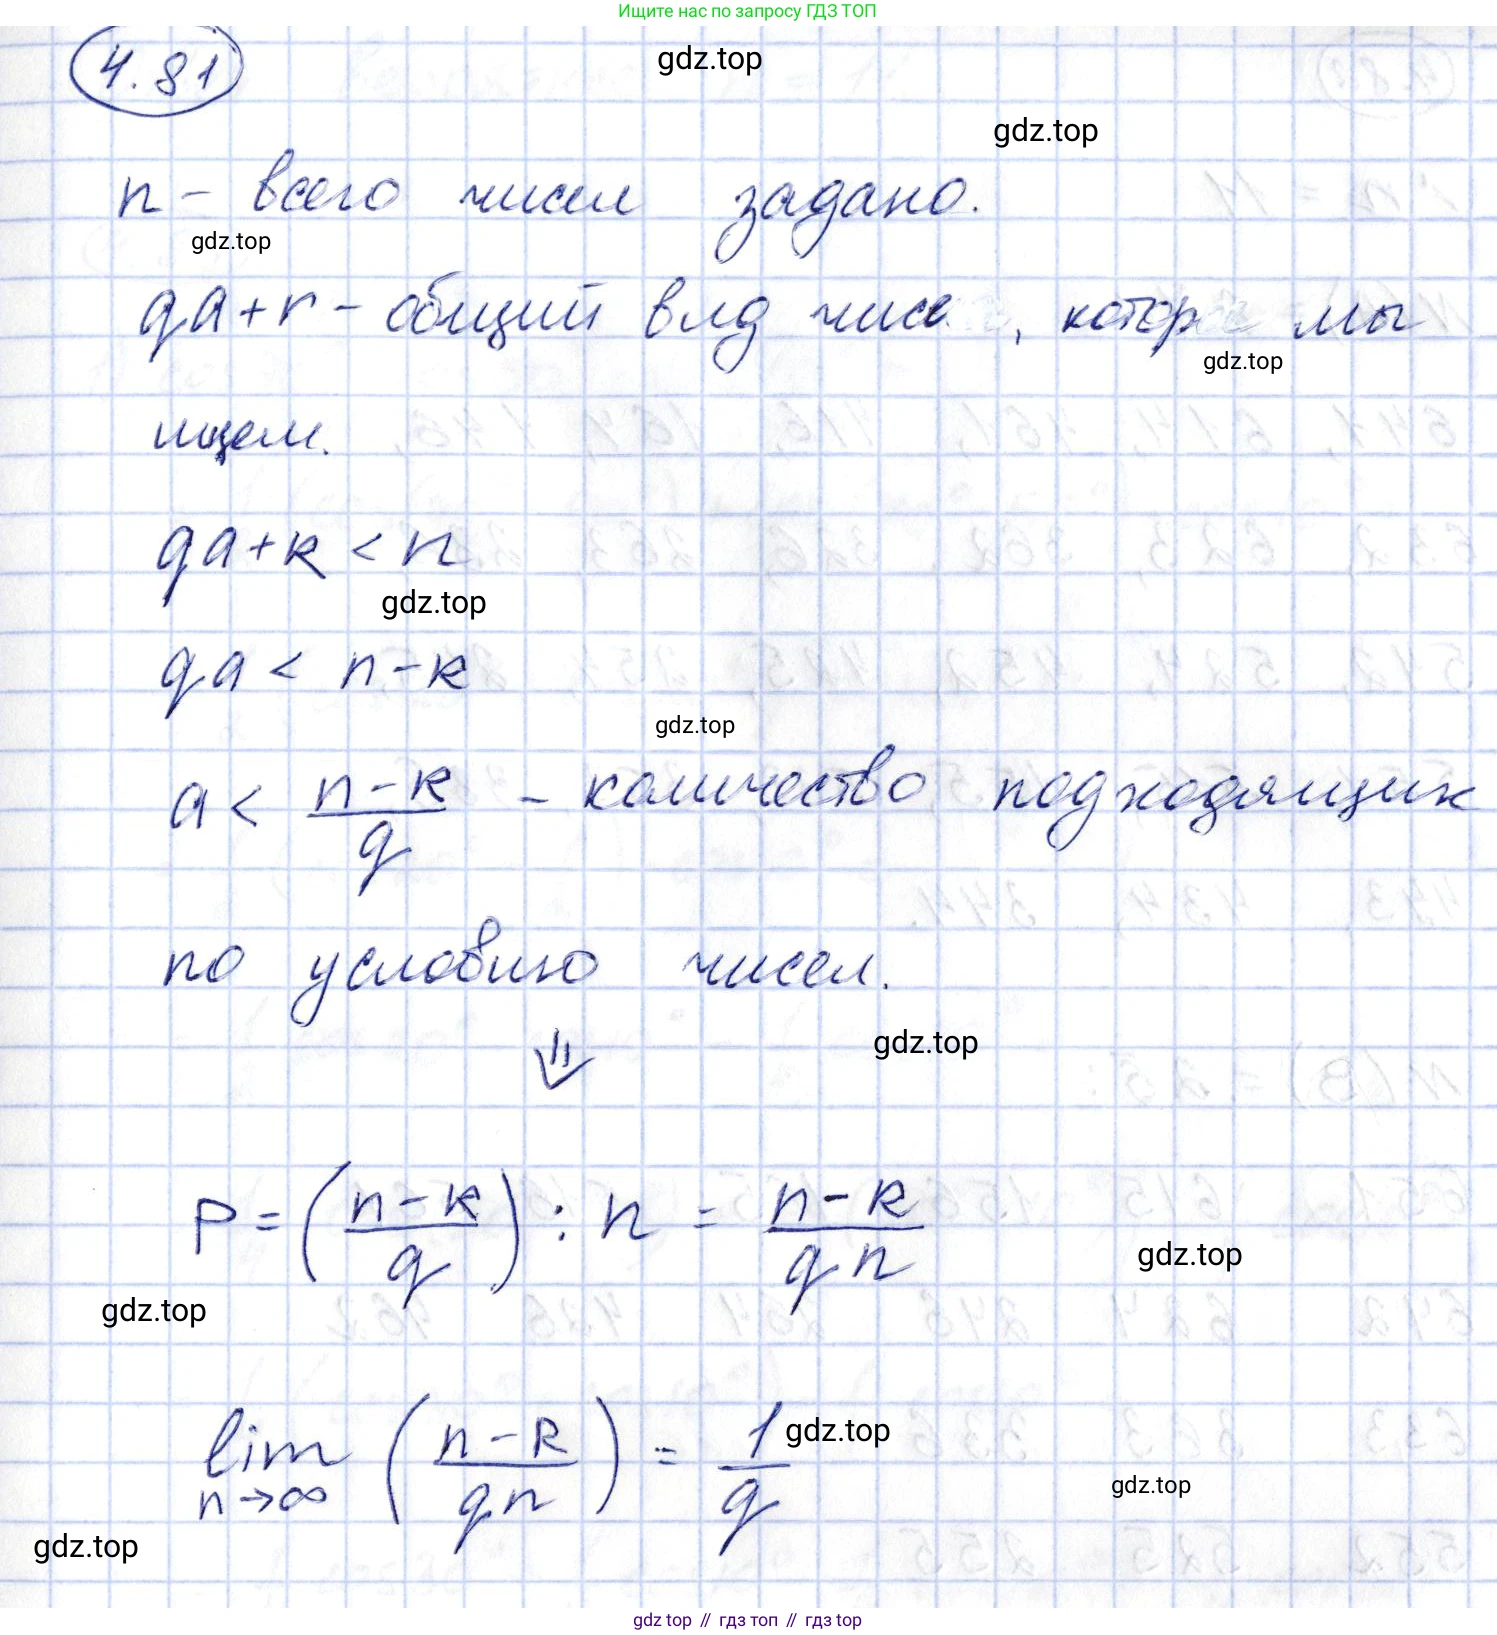 Ищите нас по запросу ГДЗ ТОП
4.81
gdz.top
gdz.top
n - всего чисел задано.
gdz.top
qa+r - общий вид чисе , котор мы
gdz.top
ищем.
qa+k < n
gdz.top
qa < n-k
gdz.top
a < \frac{n-k}{q} - количество подходящих
по условию чисел.
gdz.top
⇓
P = (\frac{n-k}{q}) : n = \frac{n-k}{qn}
gdz.top
gdz.top
lim_{n→∞} (\frac{n-k}{qn}) = \frac{1}{q}
gdz.top
gdz.top
gdz.top
gdz top // гдз топ // гдз top